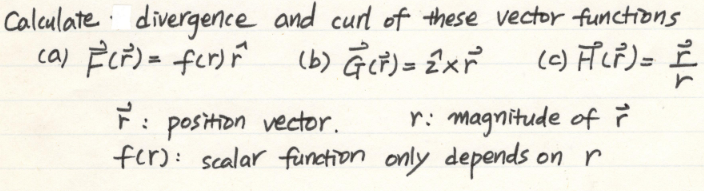 Calculate divergence and curl of these vector functions
(a) $\vec{F}(\vec{r}) = f(r)\hat{r}$ (b) $\vec{G}(\vec{r}) = \hat{z} \times \vec{r}$ (c) $\vec{H}(\vec{r}) = \frac{\vec{r}}{r}$
$\vec{r}$: position vector. r: magnitude of $\vec{r}$
f(r): scalar function only depends on r